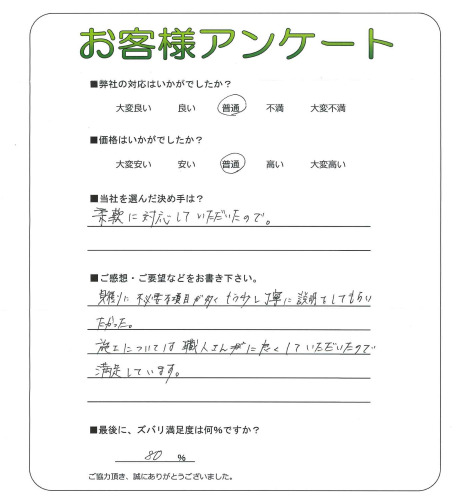 お客様アンケート
■弊社の対応はいかがでしたか？
大変良い 良い 普通 不満 大変不満
■価格はいかがでしたか？
大変安い 安い 普通 高い 大変高い
■当社を選んだ決め手は？
柔軟に対応していただいたので。
■ご感想・ご要望などをお書き下さい。
見積りに不必要な項目が多くもう少し丁寧に説明をしてもらい
たかった。
施工については職人さんが に良くしていただいたので
満足しています。
■最後に、ズバリ満足度は何％ですか？
80 ％
ご協力頂き、誠にありがとうございました。